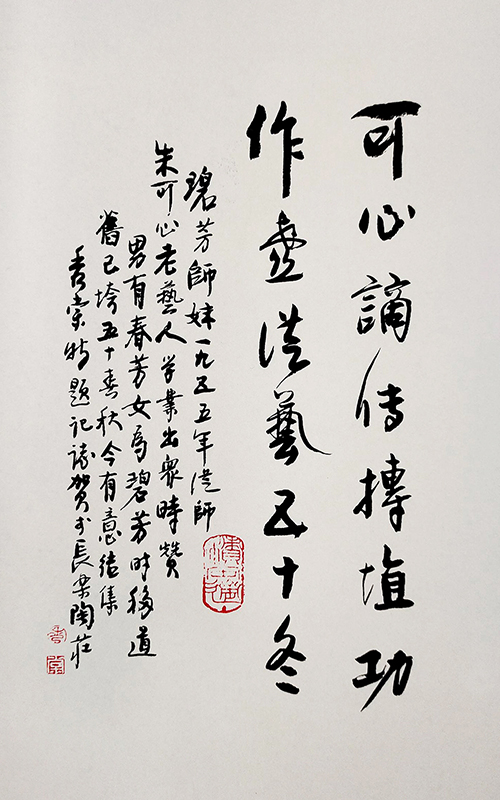 可心謫傳摶埴功
作壺從藝五十冬
碧芳師妹一九五五年從師
朱可心老藝人学業出衆時贊
男有春芳女爲碧芳时移道
舊已垮五十春秋今有意结集
秀棠特題記誌賀于長樂陶莊
秀
棠